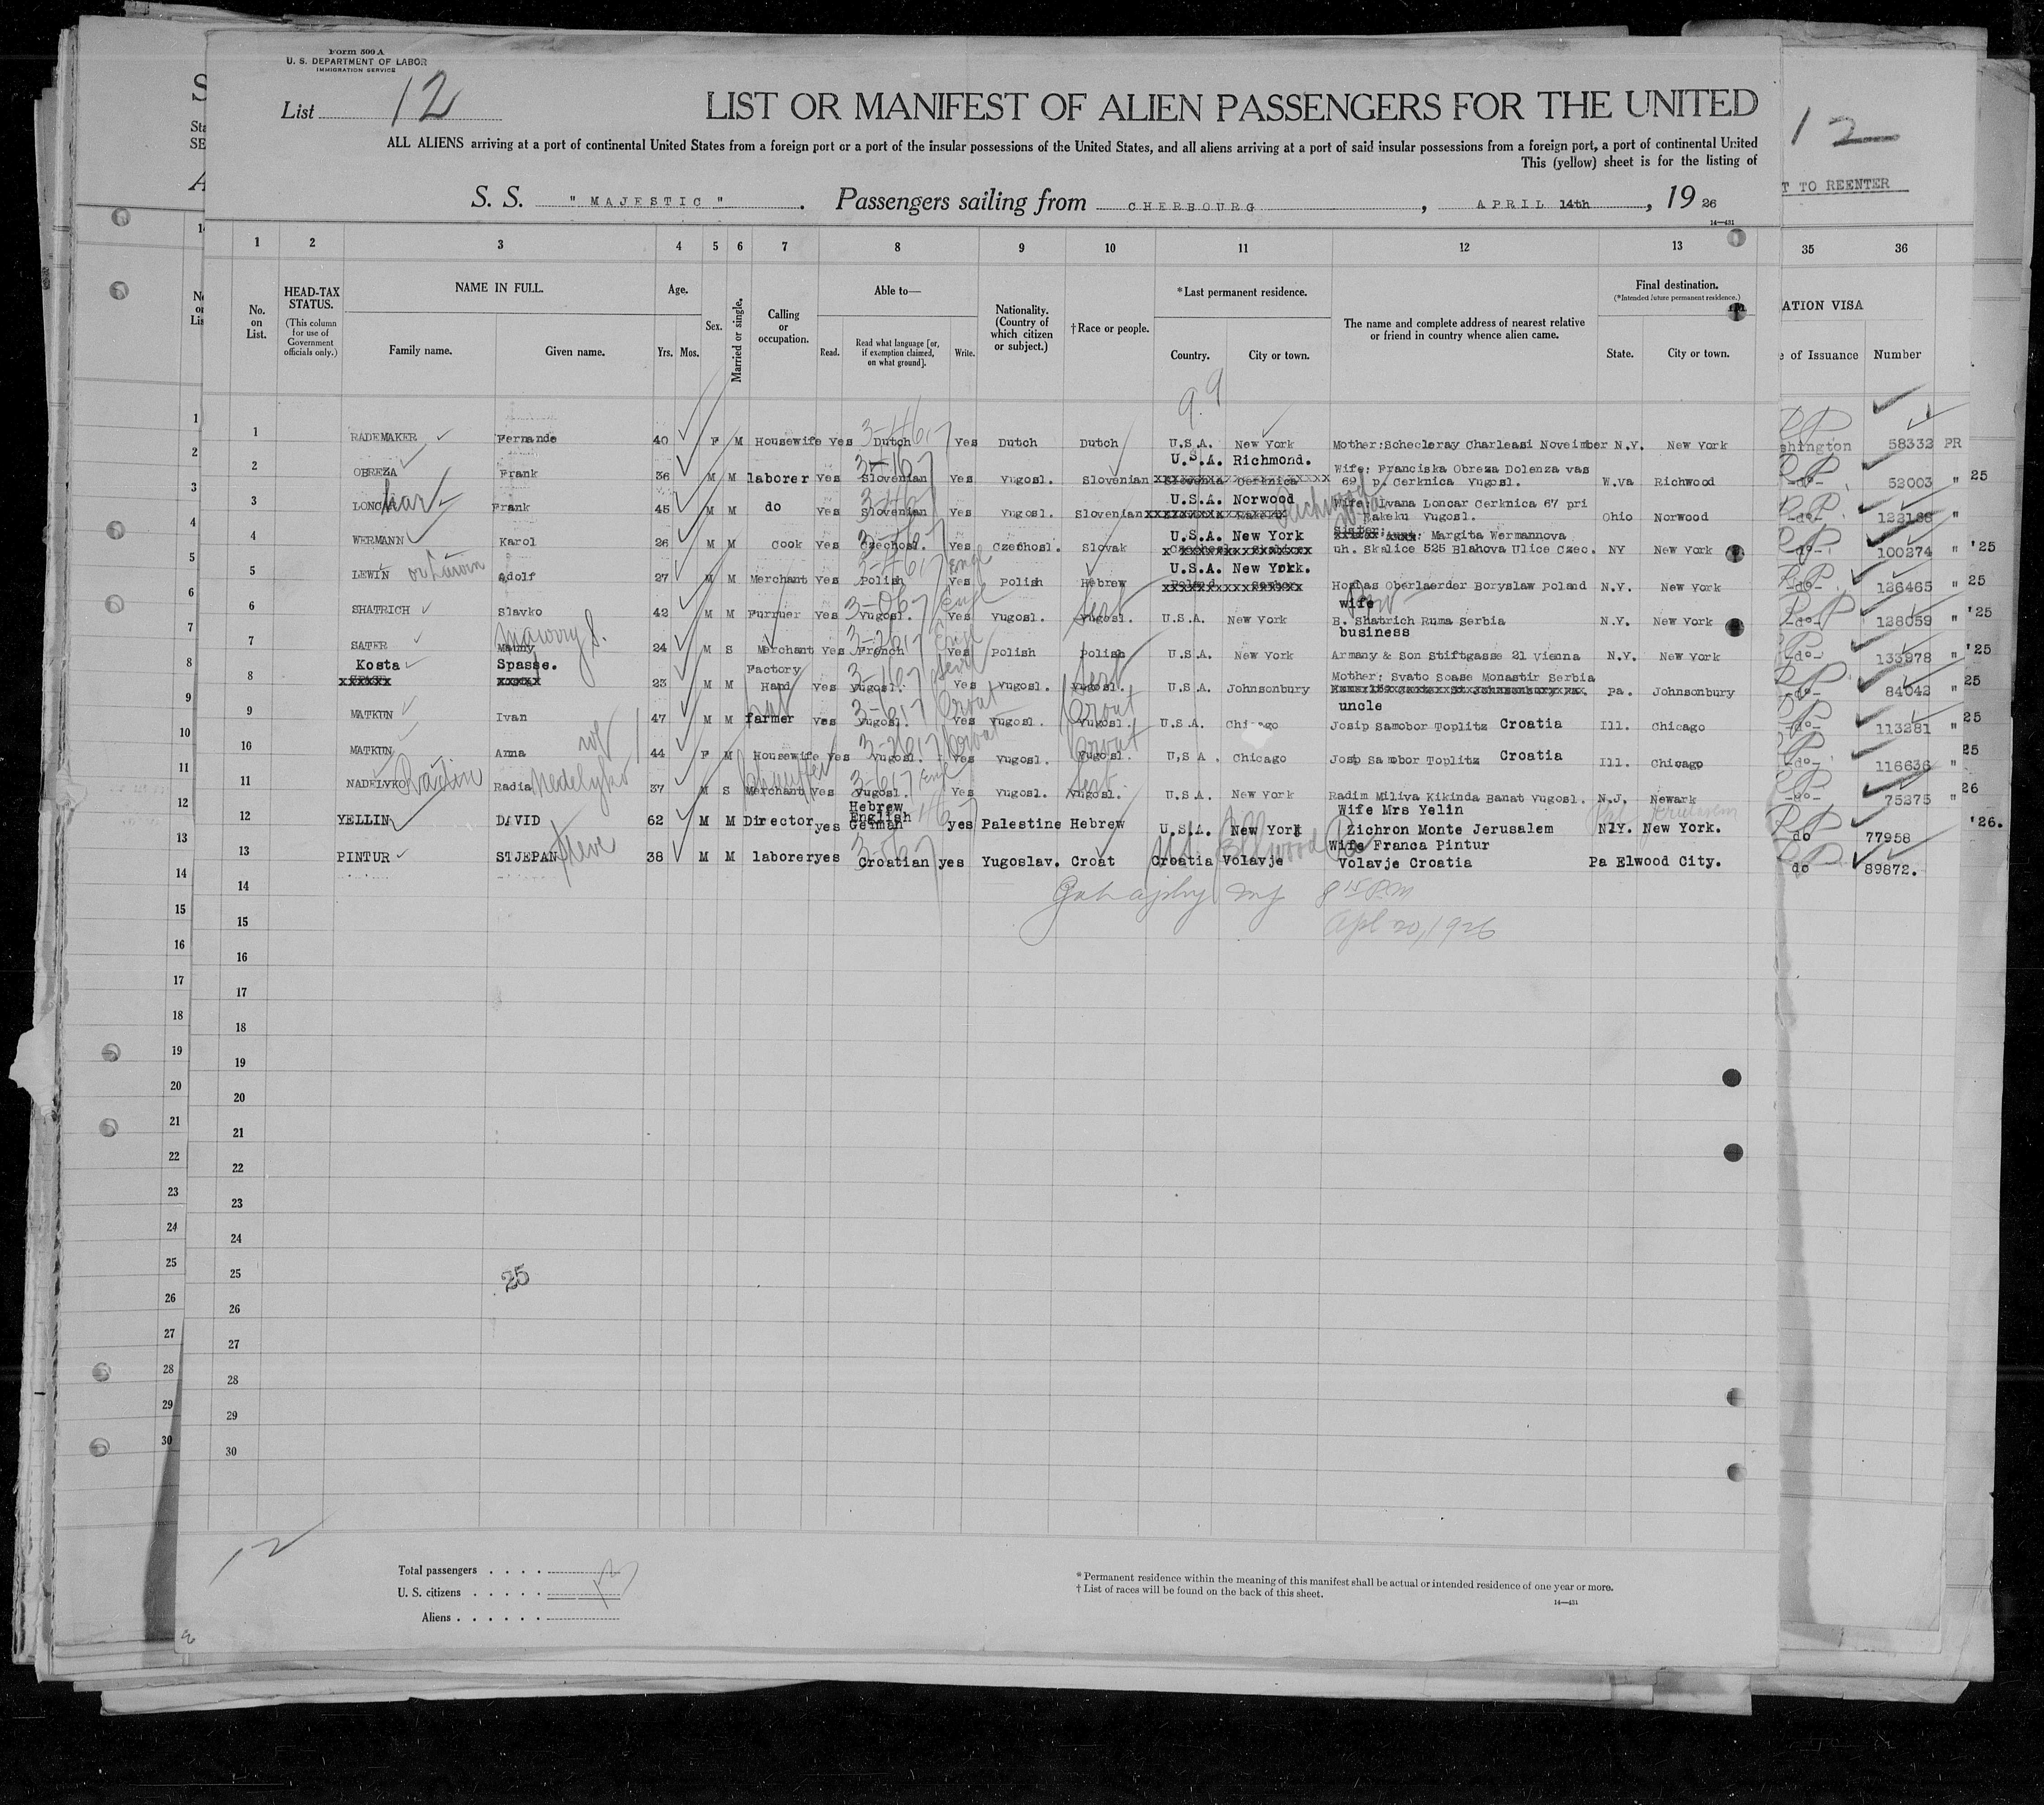 Form 500 A
U. S. DEPARTMENT OF LABOR
IMMIGRATION SERVICE
List 12
LIST OR MANIFEST OF ALIEN PASSENGERS FOR THE UNITED
ALL ALIENS arriving at a port of continental United States from a foreign port or a port of the insular possessions of the United States, and all aliens arriving at a port of said insular possessions from a foreign port, a port of continental United
This (yellow) sheet is for the listing of
12
T TO REENTER
S. S. "MAJESTIC". Passengers sailing from CHERBOURG, APRIL 14th, 19 26
14—431
1 2 3 4 5 6 7 8 9 10 11 12 13 35 36
No. on List.
HEAD-TAX STATUS.
(This column for use of Government officials only.)
NAME IN FULL.
Family name. Given name.
Age.
Yrs. Mos.
Sex.
Married or single.
Calling or occupation.
Able to—
Read. Read what language [or, if exemption claimed, on what ground]. Write.
Nationality. (Country of which citizen or subject.)
†Race or people.
*Last permanent residence.
Country. City or town.
The name and complete address of nearest relative or friend in country whence alien came.
Final destination.
(*Intended future permanent residence.)
State. City or town.
ATION VISA
e of Issuance Number
9.9
1 RADEMAKER Fernande 40 F M Housewife Yes Dutch Yes Dutch Dutch U.S.A. New York Mother: N.Y. New York shington 58332 PR
U.S.A. Richmond. Wife: Franciska Obreza Dolenza vas
2 OBREZA Frank 36 M M laborer Yes Slovenian Yes Yugosl. Slovenian 69, p. Cerknica Yugosl. W.Va Richwood -do- 52003 " 25
U.S.A. Norwood Wife: Ivana Loncar Cerknica 67 pri
3 Frank 45 M M do Yes Slovenian Yes Yugosl. Slovenian Rakeku Yugosl. Ohio Norwood -do- "
U.S.A. New York Sister: Margita Wermannova
4 WERMANN Karol 26 M M Cook Yes Czechosl. Yes Czechosl. Slovak uh. Skalice 525 Blahova Ulice Czec. NY New York -do- 100274 " '25
U.S.A. New York.
5 LEWIN Adolf 27 M M Merchant Yes Polish Yes Polish Hebrew Oberlaerder Boryslaw Poland N.Y. New York -do- 126465 " 25
wife
6 SHATRICH Slavko 42 M M Furrier Yes Yugosl. Yes Yugosl. Yugosl. U.S.A. New York E. Shatrich Ruma Serbia N.Y. New York -do- 128059 " '25
business
7 SATER 24 M S Merchant Yes French Yes Polish Polish U.S.A. New York Armany & Son Stiftgasse 21 Vienna N.Y. New York -do- 133978 " '25
Kosta Spasse. Factory Mother: Svato Soase Monastir Serbia
8 23 M M Hand Yes Yugosl. Yes Yugosl. Yugosl. U.S.A. Johnsonbury Pa. Johnsonbury -do- 84042 " 25
uncle
9 MATKUN Ivan 47 M M farmer Yes Yugosl. Yes Yugosl. Yugosl. U.S.A. Chicago Josip Samobor Toplitz Croatia Ill. Chicago -do- 113281 " 25
10 MATKUN Anna 44 F M Housewife Yes Yugosl. Yes Yugosl. Yugosl. U,S A. Chicago Josip Samobor Toplitz Croatia Ill. Chicago -do- 116636 " 25
11 NADELVKO Radin Radia Nedelyko 37 M S Merchant Yes Yugosl. Yes Yugosl. Yugosl. U.S.A. New York Radim Miliva Kikinda Banat Yugosl. N.J. Newark -do- 75275 " 26
Hebrew Wife Mrs Yelin
English
12 YELLIN DAVID 62 M M Director yes German yes Palestine Hebrew U.S.A. New York Zichron Monte Jerusalem N.Y. New York. do 77958 '26.
Wife Franca Pintur
13 PINTUR STJEPAN Steve 38 M M laborer yes Croatian yes Yugoslav. Croat Croatia Volavje Volavje Croatia Pa Elwood City. do 89872.
14
8 15 P.M
15
Apl 20, 1926
16
17
18
19
20
21
22
23
24
25 25
26
27
28
29
30
12
Total passengers
U. S. citizens
Aliens
*Permanent residence within the meaning of this manifest shall be actual or intended residence of one year or more.
†List of races will be found on the back of this sheet.
14—431